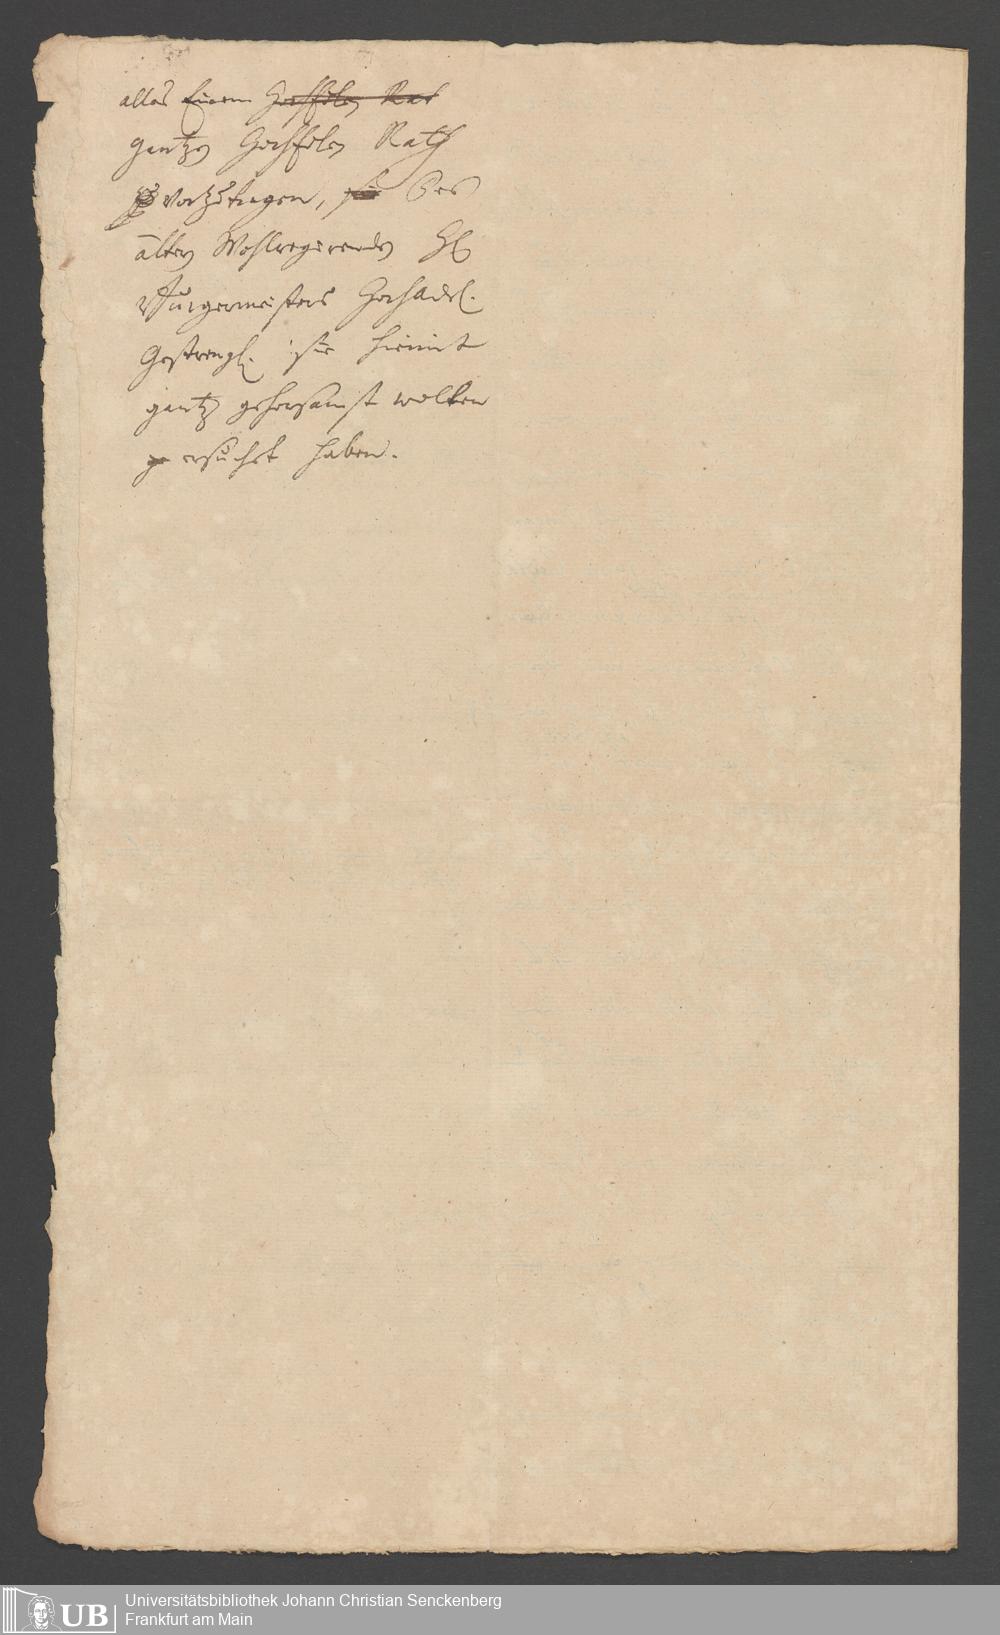 alles Einem Hochedlen Rat
gantzen Hochedlen Rath
vorzutragen, sie Des
ältern Wohlregierenden H
Burgermeisters HochAdel.
Gestrengl. sie hiemit
gantz gehorsamst wollen
ersucht haben.
UB
Universitätsbibliothek Johann Christian Senckenberg
Frankfurt am Main